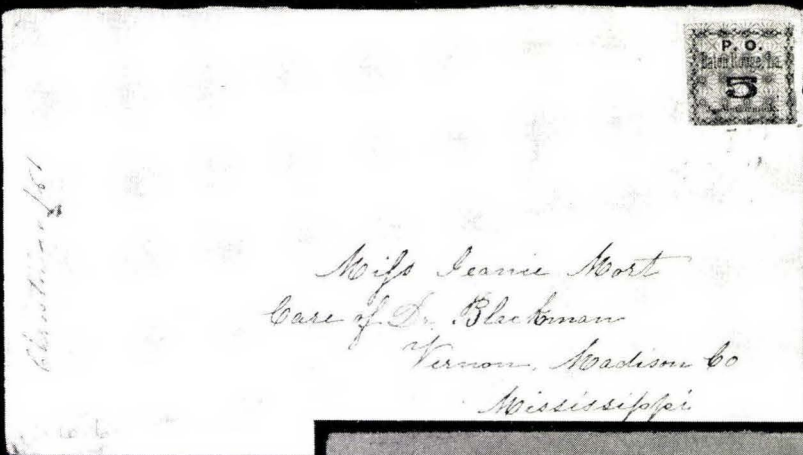 P. O.
Baton Rouge, La.
5
Miſs Jeanie Mort
Care of Dr. Blackman
Vernon, Madison Co
Mississippi